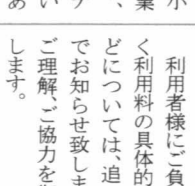 利用者様にご負
く利用料の具体的
どについては、追
でお知らせ致しま
ご理解、ご協力を
します。